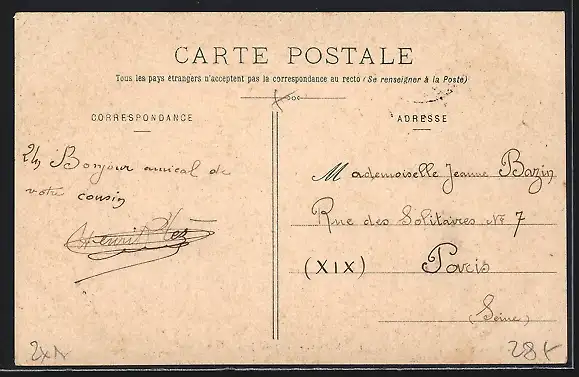 CARTE POSTALE
Tous les pays étrangers n'acceptent pas la correspondance au recto (Se renseigner à la Poste)
CORRESPONDANCE
Un Bonjour amical de
votre cousin
Henri
ADRESSE
Mademoiselle Jeanne Bazin
Rue des Solitaires No 7
(XIX) Paris
(Seine)